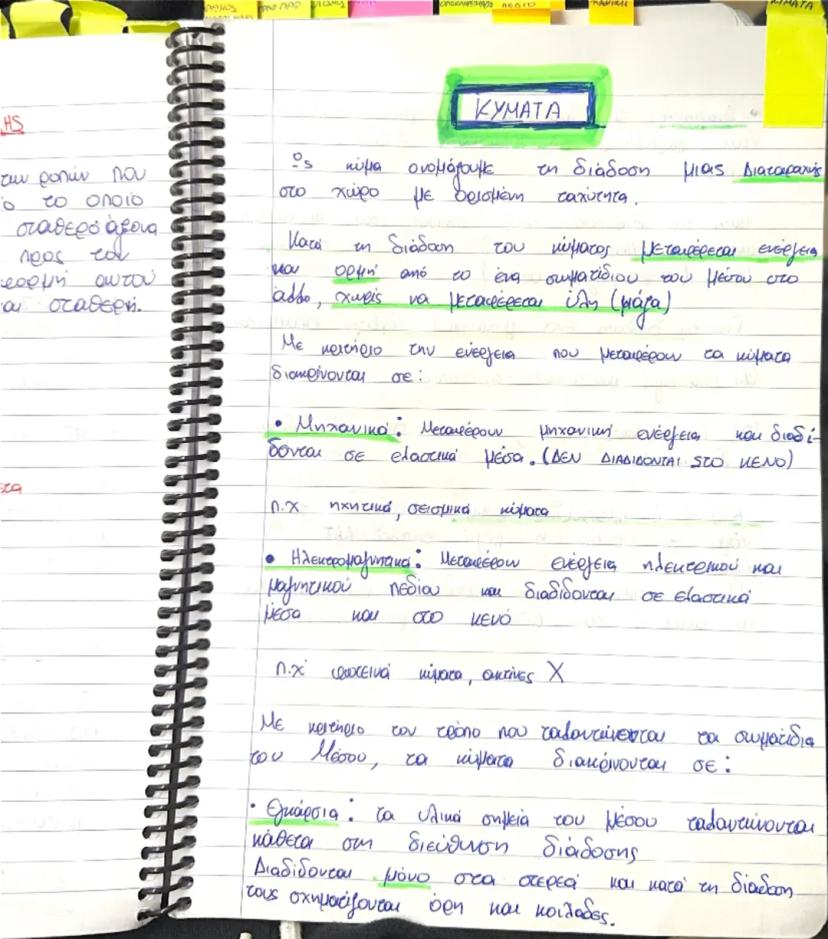 ΚΥΜΑΤΑ
ΚΥΜΑΤΑ
ΗΣ
των ροπών που
ο το οποίο
σταθερό άξονα
προς τον
ορμή αυτού
αι σταθερή.
Ως κύμα ονομάζουμε τη διάδοση μιας Διαταραχής
στο χώρο με ορισμένη ταχύτητα.
Κατά τη διάδοση του κύματος μεταφέρεται ενέργεια
και ορμή από το ένα σωματίδιου του μέσου στο
άλλο, χωρίς να μεταφέρεται ύλη (μάζα)
Με κριτήριο την ενέργεια που μεταφέρουν τα κύματα
διακρίνονται σε:
• Μηχανικά: Μεταφέρουν μηχανική ενέργεια και διαδί-
δονται σε ελαστικά μέσα. (ΔΕΝ ΔΙΑΔΙΔΟΝΤΑΙ ΣΤΟ ΚΕΝΟ)
π.χ ηχητικά, σεισμικά κύματα
• Ηλεκτρομαγνητικά: Μεταφέρουν ενέργεια ηλεκτρικού και
μαγνητικού πεδίου και διαδίδονται σε ελαστικά
μέσα και στο κενό
π.χ φωτεινά κύματα, ακτίνες Χ
Με κριτήριο τον τρόπο που ταλαντώνονται τα σωματίδια
του Μέσου, τα κύματα διακρίνονται σε:
• Εγκάρσια: τα υλικά σημεία του μέσου ταλαντώνονται
κάθετα στη διεύθυνση διάδοσης
Διαδίδονται μόνο στα στερεά και κατά τη διάδοση
τους σχηματίζονται όρη και κοιλάδες.